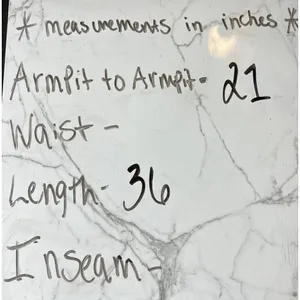 * measurements in inches *
Armpit to Armpit- 21
Waist -
Length- 36
Inseam -